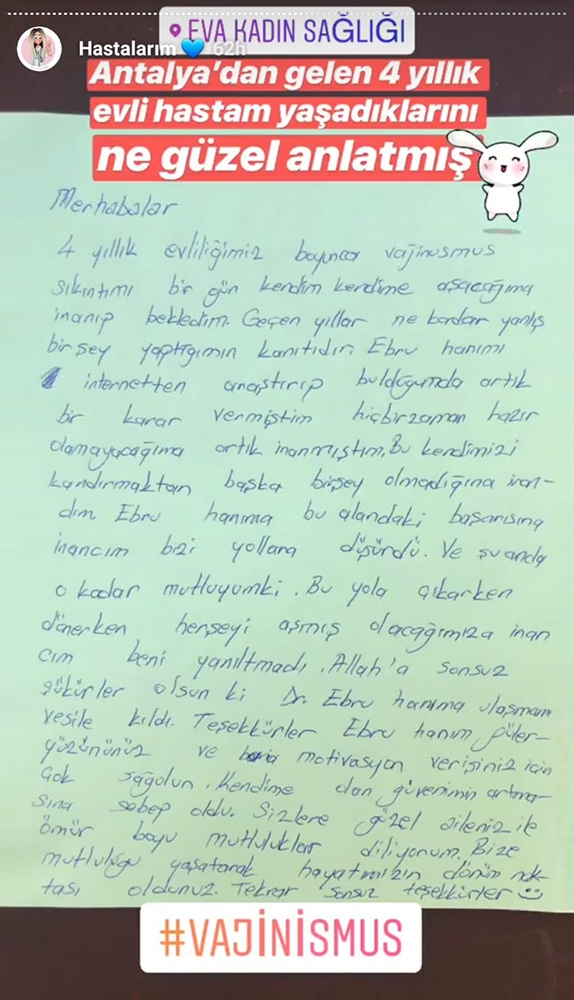 EVA KADIN SAĞLIĞI
Hastalarım 💙 62h
Antalya'dan gelen 4 yıllık
evli hastam yaşadıklarını
ne güzel anlatmış
Merhabalar
4 yıllık evliliğimiz boyunca vajinusmus
sıkıntımı bir gün kendim kendime aşacağıma
inanıp bekledim. Geçen yıllar ne kadar yanlış
birşey yaptığımın kanıtıdır. Ebru hanımı
internetten araştırıp bulduğumda artık
bir karar vermiştim hiçbirzaman hazır
olamayacağıma artık inanmıştım. Bu kendimizi
kandırmaktan başka birşey olmadığına inan-
dım. Ebru hanıma bu alandaki başarısına
inancım bizi yollara düşürdü. Ve şu anda
o kadar mutluyumki. Bu yola çıkarken
dönerken herşeyi aşmış olacağımıza inan
cım beni yanıltmadı. Allah'a sonsuz
şükürler olsun ki Dr. Ebru hanıma ulaşmam
vesile kıldı. Teşekkürler Ebru hanım güler-
yüzününüz ve motivasyon verişiniz için
çok sağolun. Kendime olan güvenimin artma-
sına sebep oldu. Sizlere güzel aileniz ile
ömür boyu mutluluklar diliyorum. Bize
mutluluğu yaşatarak hayatımızın dönüm nok
tası oldunuz. Tekrar sonsuz teşekkürler ☺
#VAJİNİSMUS